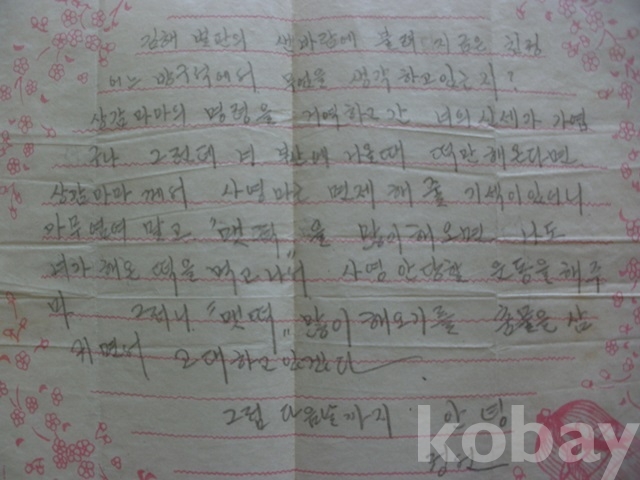 김해 벌판의 찬바람에 몰려 지금은
어느 방구석에서 무엇을 생각하고 있는지?
상감마마의 명령을 거역하고 간 너의 신세가 가엾
구나 그런데 너 부산에 가올때 떡만 해온다면
상감마마 께서 사형만은 면제 해 줄 기색이 있으니
아무염려 말고 "맷떡"을 많이 해오면 나도
너가 해온 떡을 먹고 나서 사형 안당할 운동을 해주
마 그러니 "맷떡" 많이 해오기를 군물을 삼
키면서 고대하고 있겠다.
그럼 다음날까지 안녕
kobay